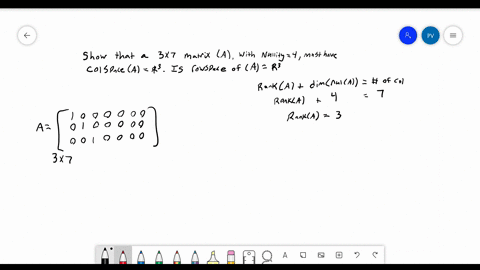 Show that a 3x7 matrix (A), with Nullity=4, must have
ColSpace(A) = R³. Is rowspace of (A) = R³
Rank(A) + dim(nul(A)) = # of col
Rank(A) + 4 = 7
Rank(A) = 3
A = [ 1 0 0 0 0 0 0
0 1 0 0 0 0 0
0 0 1 0 0 0 0 ]
3x7
PV
A